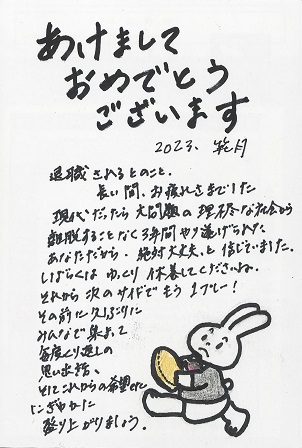 あけまして
おめでとう
ございます
2023、 元月
退職されるとのこと。
長い間、お疲れさまでした
現代だったら大問題の理不尽な社会から
離脱することなく3年間やり遂げられた
あなただから、絶対大丈夫、と信じていました。
しばらくは ゆっくり休養してくださいね。
それから 次のサイドで もう1プレー!
その前に久しぶりに
みんなで集まって
毎度くり返しの
思い出話、
そしてこれからの希望
にぎやかに
盛り上がりましょう。